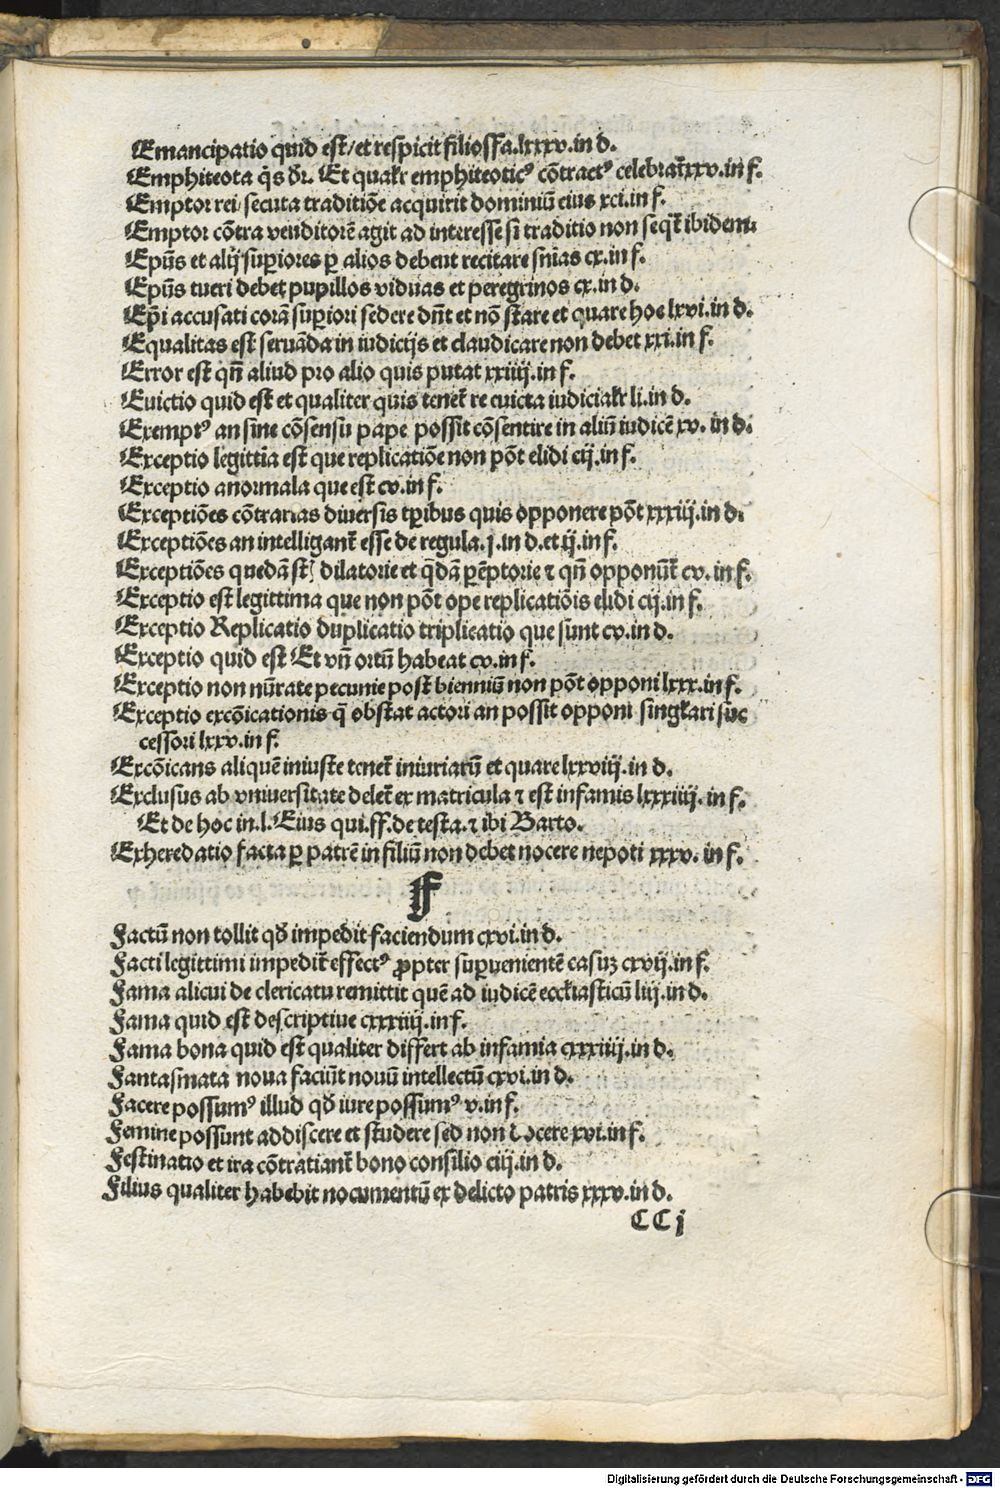 Emancipatio quid est/ et respicit filiosfa.lxxxv.in d.
Emphiteota q̄s dr̄. Et qualr̄ emphiteoticꝰ cōtractꝰ celebrat̄ xxv.in f.
Emptor rei secuta traditiōe acquirit dominiū eius xci.in f.
Emptor cōtra venditorē agit ad interesse si traditio non seqt̄ ibidem.
Ep̄us et alij superiores ꝑ alios debent recitare sn̄ias cx.in f.
Ep̄us tueri debet pupillos viduas et peregrinos cx.in d.
Ep̄i accusati corā suꝑiori sedere dn̄t et nō stare et quare hoc lxvi.in d.
Equalitas est seruāda in iudicijs et claudicare non debet xxi.in f.
Error est qn̄ aliud pro alio quis putat xxiiij.in f.
Euictio quid est et qualiter quis tenet̄ re euicta iudicialr̄ li.in d.
Exemptꝰ an sine cōsensu pape possit cōsentire in aliū iudicē xv. in d.
Exceptio legittia est que replicatiōe non pōt elidi cij.in f.
Exceptio anormala que est cv.in f.
Exceptiōes cōtrarias diuersis tꝑibus quis opponere pōt xxxiij.in d.
Exceptiōes an intelligant̄ esse de regula.j.in d.et ij.in f.
Exceptiōes quedā st̄ dilatorie et q̄dā ꝑēptorie ⁊ qn̄ opponūt̄ cv.in f.
Exceptio est legittima que non pōt ope replicatiōis elidi cij.in f.
Exceptio Replicatio duplicatio triplicatio que sunt cv.in d.
Exceptio quid est Et vn̄ ortū habeat cv.in f.
Exceptio non nūrate pecunie post bienniū non pōt opponi lxxx.in f.
Exceptio excōicationis q̄ obstat actori an possit opponi singlari suc
cessori lxxv.in f.
Excōicans aliquē iniuste tenet̄ iniuriarū et quare lxxviij.in d.
Exclusus ab vniuersitate delet̄ ex matricula ⁊ est infamis lxxxiiij.in f.
Et de hoc in.l.Eius qui.ff.de testa.⁊ ibi Barto.
Exheredatio facta ꝑ patrē in filiū non debet nocere nepoti xxxv. in f.
F
Factū non tollit qd̄ impedit faciendum cxvi.in d.
Facti legittimi impedit̄ effectꝰ ꝓpter suꝑuenientē casuꝫ cxvij.in f.
Fama alicui de clericatu remittit quē ad iudicē eccl̄iasticū liij.in d.
Fama quid est descriptiue cxxxiiij.in f.
Fama bona quid est qualiter differt ab infamia cxxxiiij.in d.
Fantasmata noua faciūt nouū intellectū cxvi.in d.
Facere possumꝰ illud qd̄ iure possumꝰ v.in f.
Femine possunt addiscere et studere sed non docere xvi.in f.
Festinatio et ira cōtratiant̄ bono consilio ciij.in d.
Filius qualiter habebit nocumentū ex delicto patris xxxv.in d.
CC j
Digitalisierung gefördert durch die Deutsche Forschungsgemeinschaft - DFG